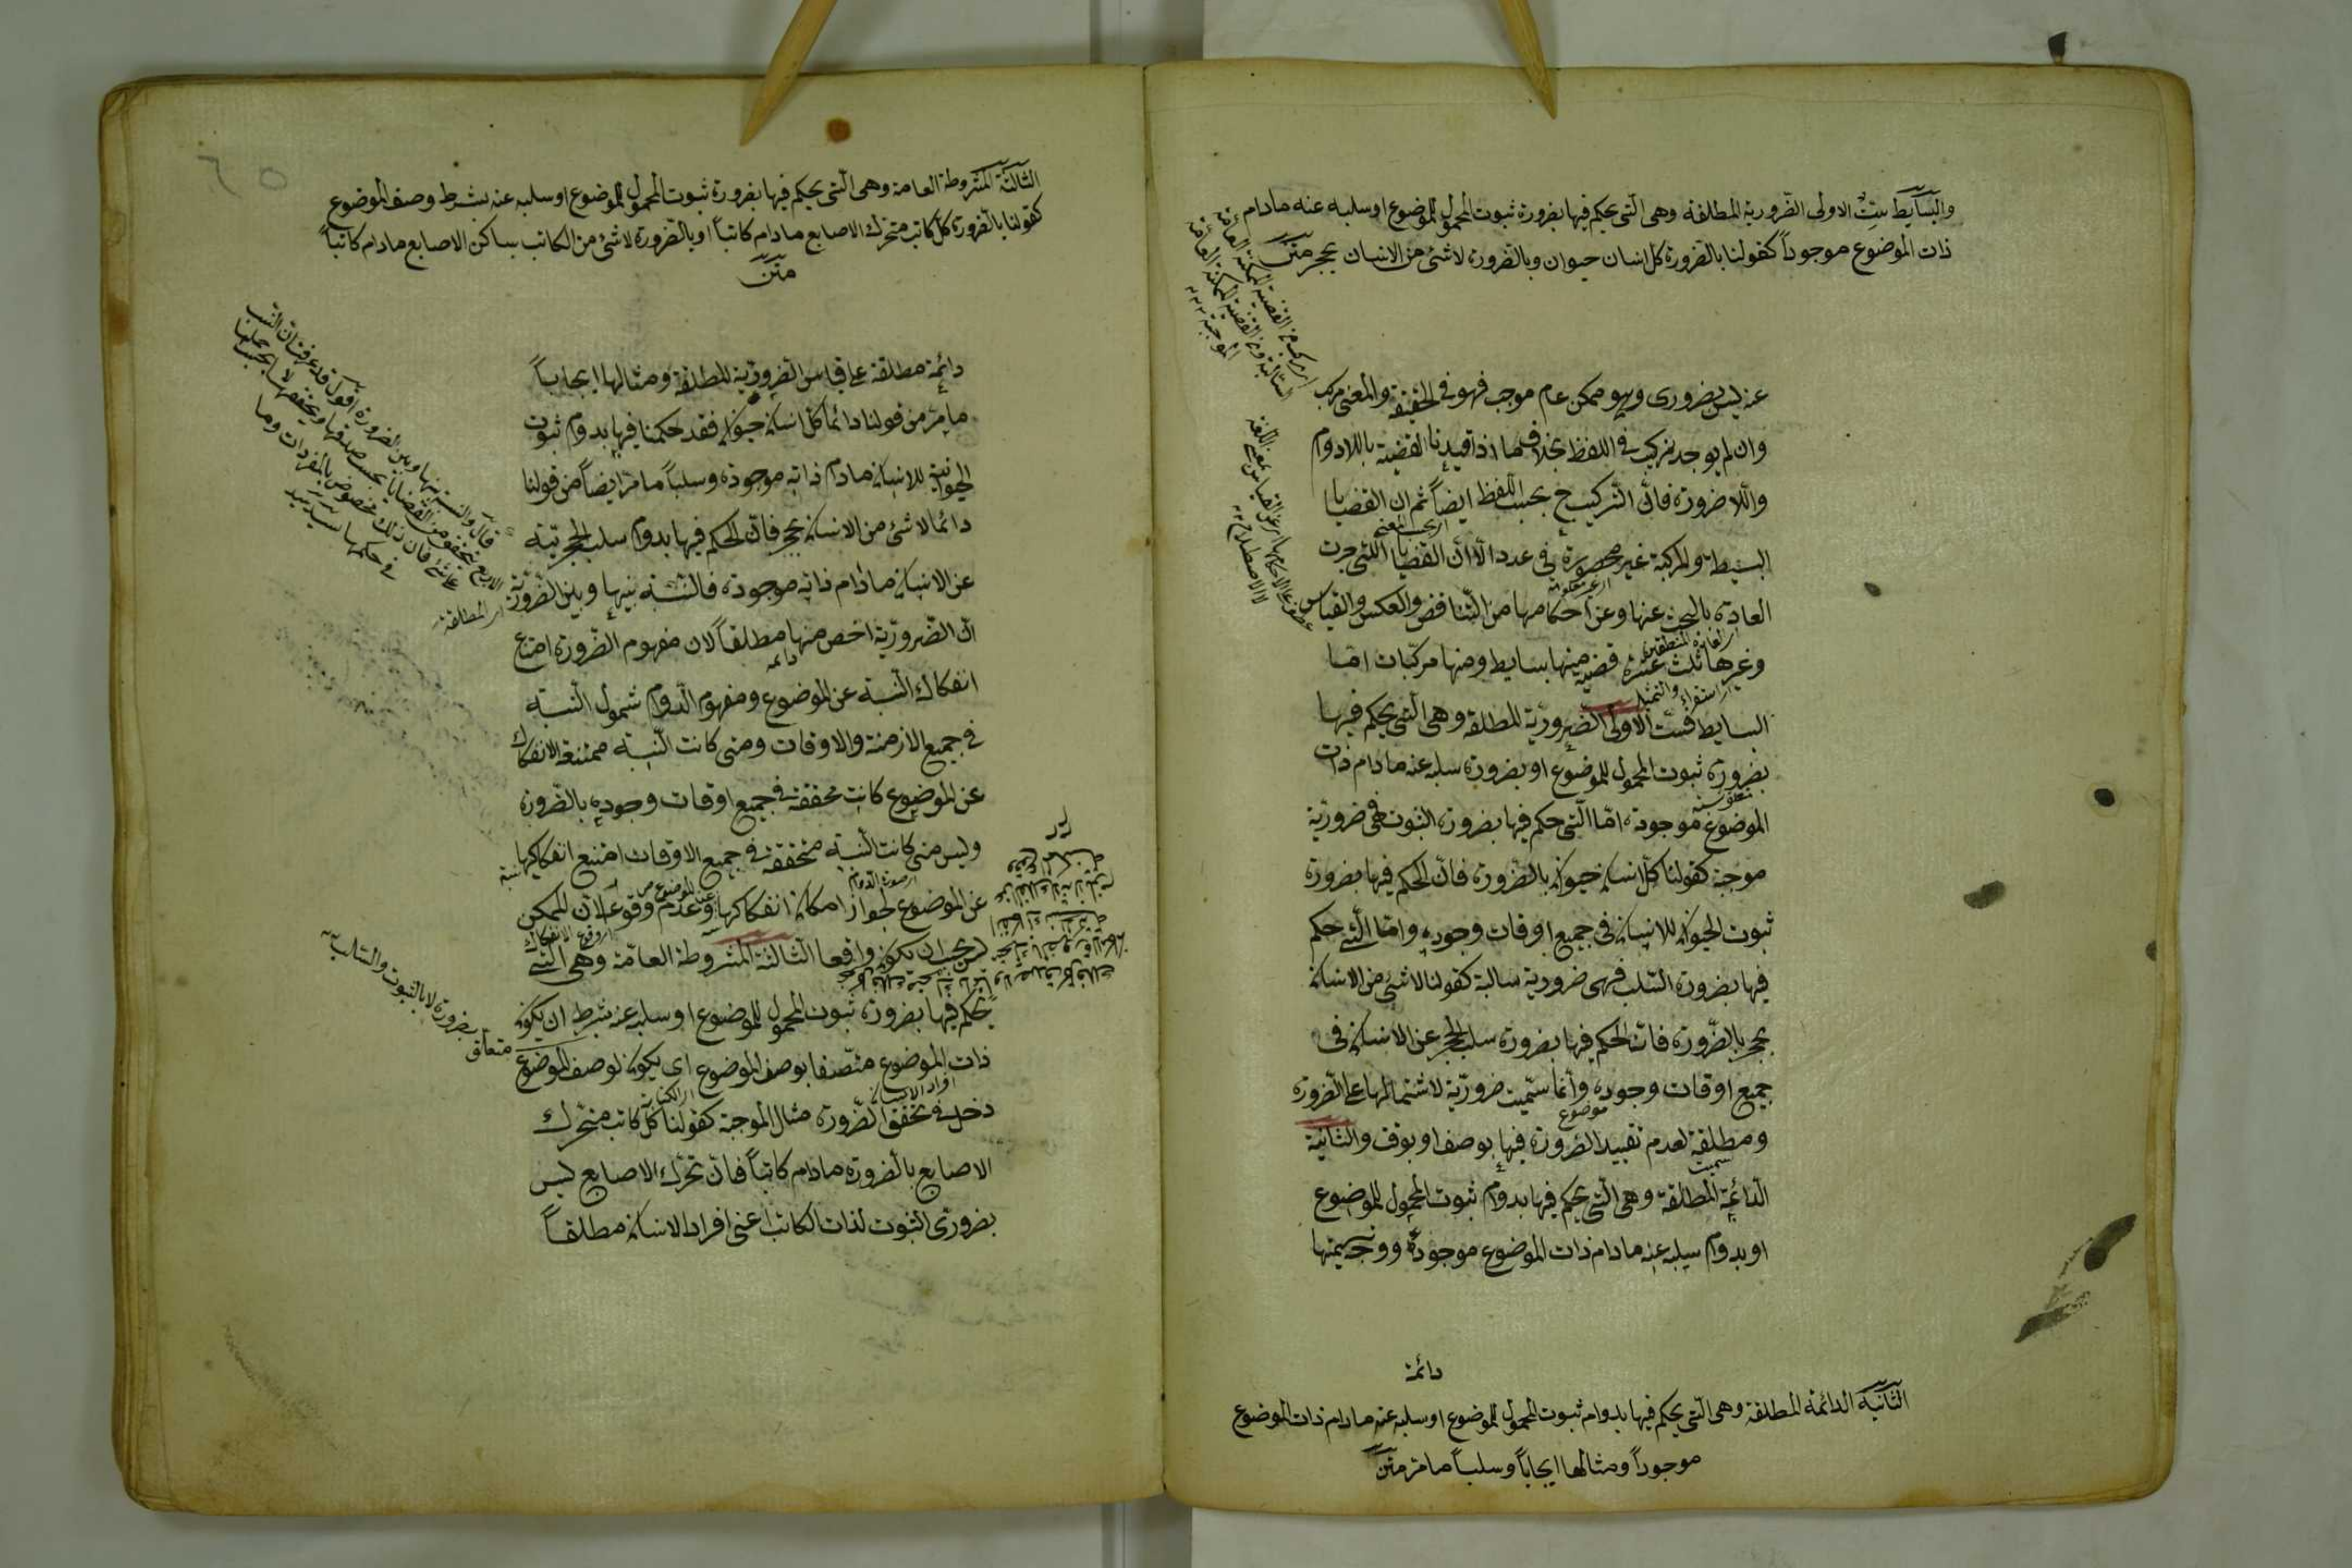 والبسايط ست الاولى الضرورية المطلقة وهى الّتى يحكم فيها بضرورة ثبوت المحمول للموضوع او سلبه عنه مادام
ذات الموضوع موجوداً كقولنا بالضرورة كل انسان حيوان وبالضرورة لا شئ من الانسان بحجر متن
عنه ليس بضرورى وهو ممكن عام موجب فهو فى الحقيقة والمعنى مركب
وان لم يوجد تركيب فى اللفظ بخلاف ما اذا قيدنا القضية باللادوام
واللاضرورة فانّ التركيب ح بحسب اللفظ ايضاً ثم ان القضايا
اى بحسب المعنى
البسيطة والمركبة غير محصورة فى عدد الّا انّ القضايا اللتى جرت
اى غير معلومة
العادة بالبحث عنها وعن احكامها من التناقض والعكس والقياس
وغيرها ثلث عشرة قضية منها بسايط ومنها مركبات امّا
استقراء والتمثيل
البسايط فست الاولى الضرورية المطلقة وهى الّتى يحكم فيها
بضرورة ثبوت المحمول للموضوع او بضرورة سلبه عنه مادام ذات
الموضوع موجودة امّا الّتى حكم فيها بضرورة الثبوت فهى ضرورية
موجبة كقولنا كلّ انسان حيوان بالضرورة فانّ الحكم فيها بضرورة
ثبوت الحيوان للانسان فى جميع اوقات وجوده وامّا الّتى حكم
فيها بضرورة السّلب فهى ضرورية سالبة كقولنا لا شئ من الانسان
بحجر بالضّرورة فانّ الحكم فيها بضرورة سلب الحجر عن الانسان فى
جميع اوقات وجوده وانّما سمّيت ضروريّة لاشتمالها على الضّرورة
موضوع
ومطلقة لعدم تقييد الضرورة فيها بوصف او بوقت والثانية
سميت
الدائمة المطلقة وهى الّتى يحكم فيها بدوام ثبوت المحمول للموضوع
او بدوام سلبه عنه مادام ذات الموضوع موجودة ووجه تسميتها
دائمة
الثانية الدائمة المطلقة وهى الّتى يحكم فيها بدوام ثبوت المحمول للموضوع او سلبه عنه مادام ذات الموضوع
موجوداً ومثالها ايجاباً وسلباً مامرّ متن
الثالثة المشروطة العامة وهى الّتى يحكم فيها بضرورة ثبوت المحمول للموضوع او سلبه عنه بشرط وصف الموضوع
كقولنا بالضرورة كل كاتب متحرك الاصابع مادام كاتباً او بالضّرورة لا شئ من الكاتب بساكن الاصابع مادام كاتباً
متن
دائمة مطلقة على قياس الضرورية المطلقة ومثالها ايجاباً
مامرّ من قولنا دائما كل انسان حيوان فقد حكمنا فيها بدوام ثبوت
الحيوانية للانسان مادام ذاته موجودة وسلباً مامرّ ايضاً من قولنا
دائما لا شئ من الانسان بحجر فانّ الحكم فيها بدوام سلب الحجريّة
عن الانسان مادام ذاته موجودة فالنّسبة بينها وبين الضّروريّة
اى المطلقة
انّ الضّروريّة اخصّ منها مطلقاً لان مفهوم الضّرورة امتناع
دائمه
انفكاك النّسبة عن الموضوع ومفهوم الدّوام شمول النّسبة
فى جميع الازمنة والاوقات ومتى كانت النّسبة ممتنعة الانفكاك
عن الموضوع كانت محققة فى جميع اوقات وجوده بالضّرورة
وليس متى كانت النّسبة متحققة فى جميع الاوقات امتنع انفكاكها
عن الموضوع لجواز امكان انفكاكها وعدم وقوعه لانّ الممكن
اى وقوع الانفكاك
ليس يجب ان يكون واقعا الثالثة المشروطة العامّة وهى الّتى
يحكم فيها بضرورة ثبوت المحمول للموضوع او سلبه عنه بشرط ان يكون
ذات الموضوع متّصفا بوصف الموضوع اى يكون لوصف الموضوع
افراد الانسان
دخل فى تحقق الضّرورة مثال الموجبة كقولنا كلّ كاتب متحّرك
الاصابع بالضرورة مادام كاتباً فانّ تحرّك الاصابع ليس
بضرورى الثبوت لذات الكاتب اعنى افراد الانسان مطلقاً
متعلق بضرورة لا بالثبوت والسّلب